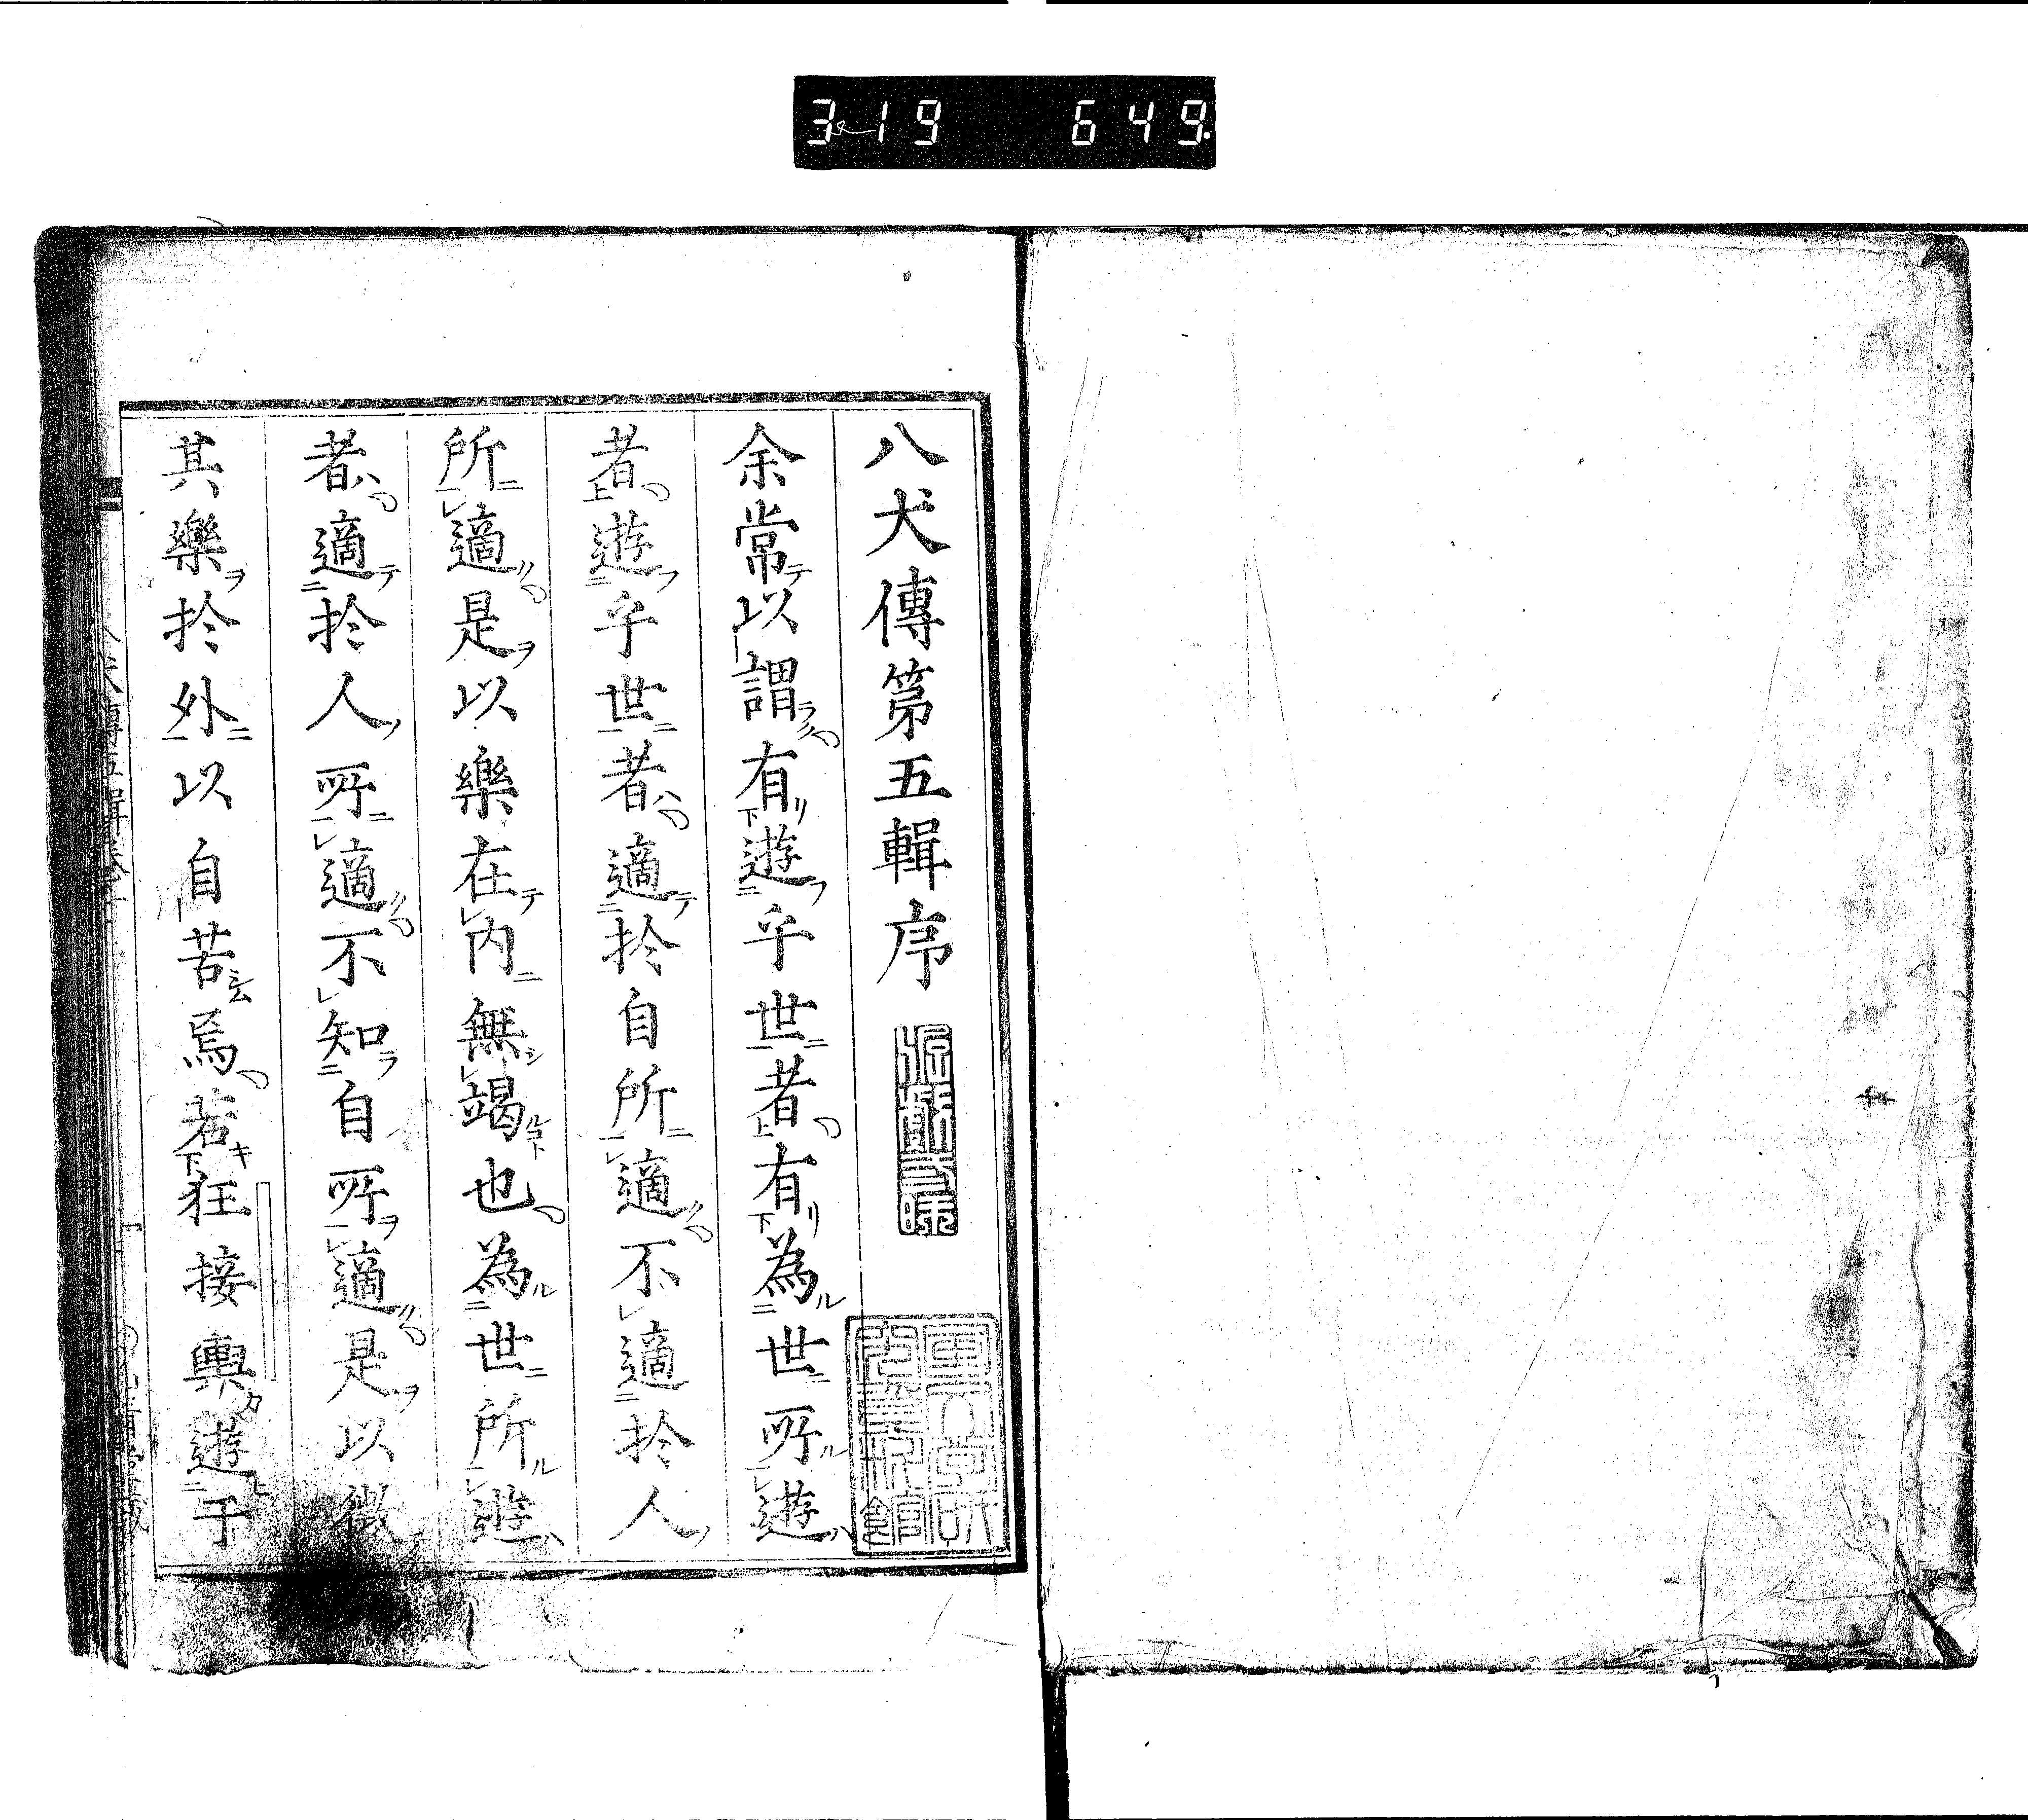 319 649
八犬傳第五輯序
余常以謂有遊乎世者有為世所遊
者遊乎世者適於自所適不適於人
所適是以樂在内無竭也為世所遊
者適於人所適不知自所適是以徴
其樂於外以自苦焉若狂接輿遊于